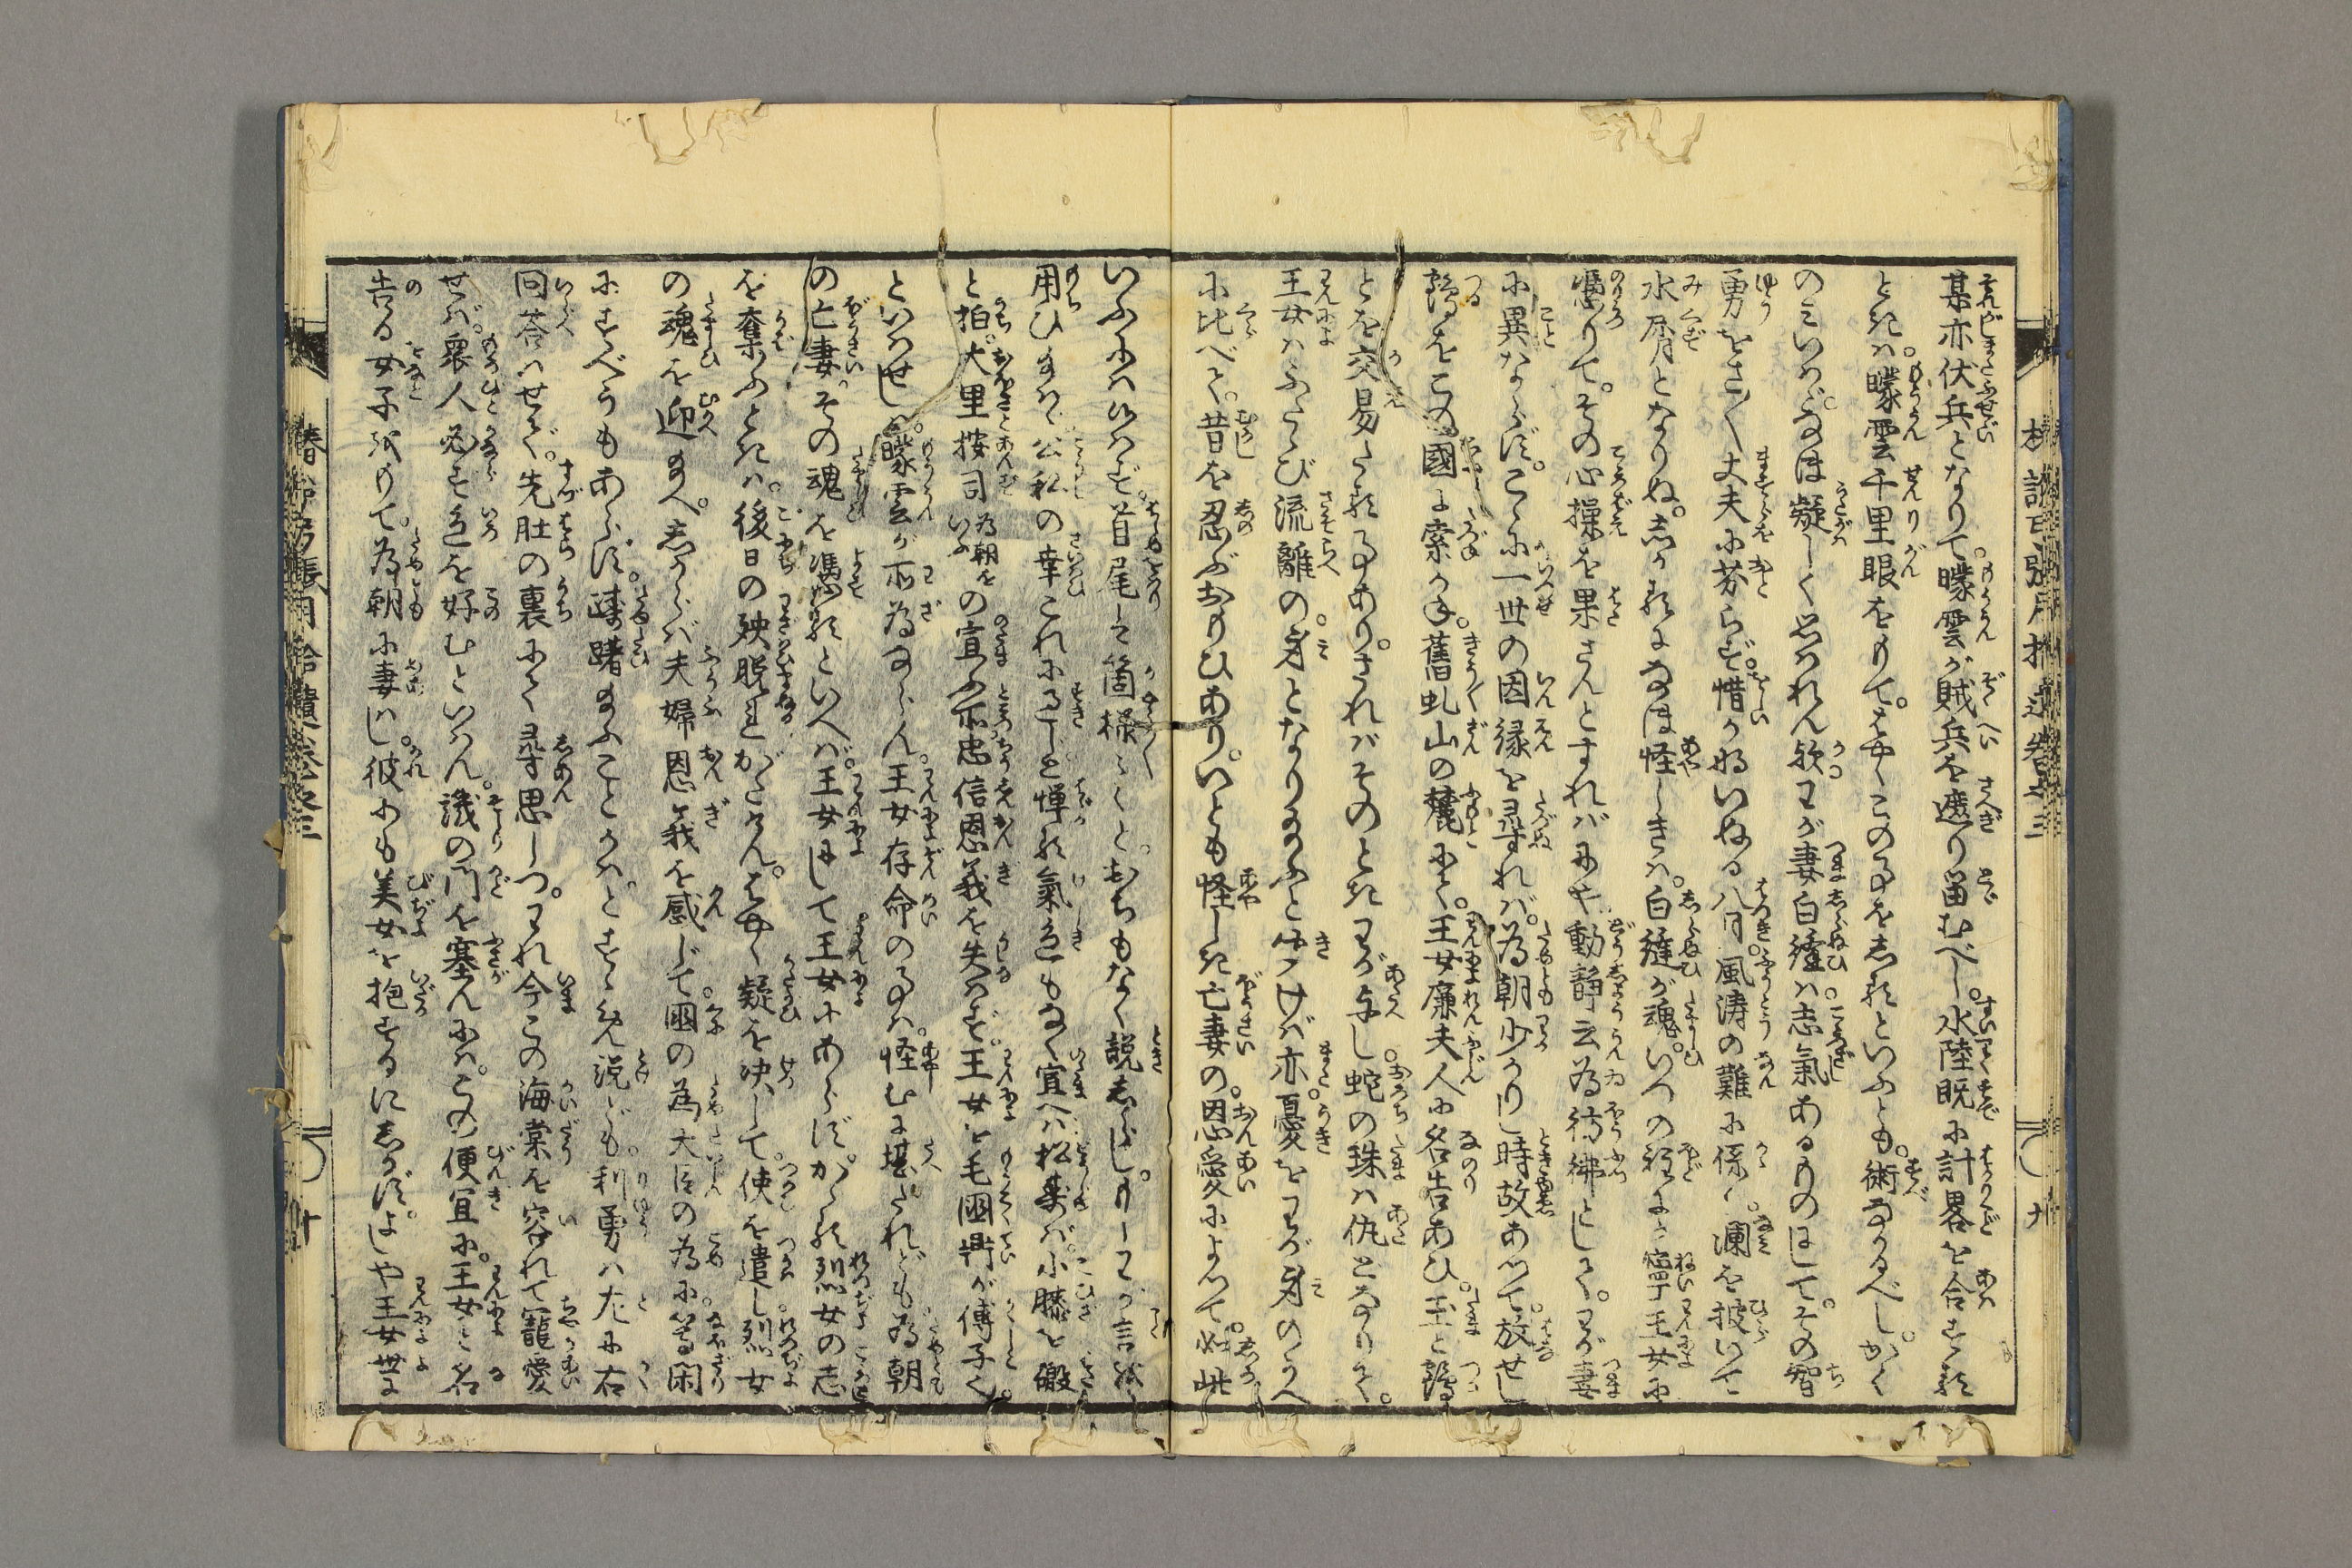 某亦伏兵となりて。曚雲が賊兵を遮り留むべし。水陸既に計畧を合する
ときは。曚雲千里眼をもて。よくこの事をしるといふとも。術なかるべし。かく
のみいはゞ。なほ疑しく思はれん歟。わが妻白縫は。志氣あるものにて。その智
勇をさ〳〵丈夫に劣らず。惜かないぬる八月。風濤の難に係り。瀾を披いて
水屑となりぬ。しかるになほ怪しきは。白縫が魂。いつの程にか寧王女に
憑りて。その心操を果さんとすればにや。動静云為彷彿として。わが妻
に異ならず。こゝに一世の因縁を尋れば。為朝少かりし時故あつて。放せし
鶴をこの國に索かね。舊虬山の麓にて。王女廉夫人に名告あひ。玉と鶴
とを交易たる事あり。さればそのときわが与し蛇の珠は仇となりて。
王女はふたゝび流離の。身となり給ふと聞けば亦。憂をわが身のうへ
に比べて。昔を忍ぶおもひあり。いとも怪しき亡妻の。恩愛によつて如此
いふにはいはず。首尾は箇様々々と。おちもなく説しらし。もしわが言を
用ひ給はゞ。公私の幸これに過じと。憚る氣色もなく宣へは。松壽は小膝を礟
と拍。大里按司為朝をいふの宣ふ所。忠信恩義を失はず。王女を毛國鼎が傅子く
といはせしは。曚雲が所為ならん。王女存命の事は。怪むに堪たれども。為朝
の亡妻。その魂を憑るといへば。王女にして王女にあらず。かゝる烈女の志
を奪ふときは。後日の殃脱れがたけん。よく疑を决して。使を遣し烈女
の魂を迎給へ。しからば夫婦恩義を感じて。國の為大臣の為に等閑
にすべうもあらず。躊躇給ふことかはとすゝめ説ども。利勇は左に右
回荅はせで。先肚の裏にて尋思しつ。われ今この海棠を容れて寵愛
せば。衆人必ず色を好むといはん。譏の門を塞んには。この便宜に。王女と名
告る女子をもて。為朝に妻し。彼にも美女を抱するにしかず。よしや王女世に